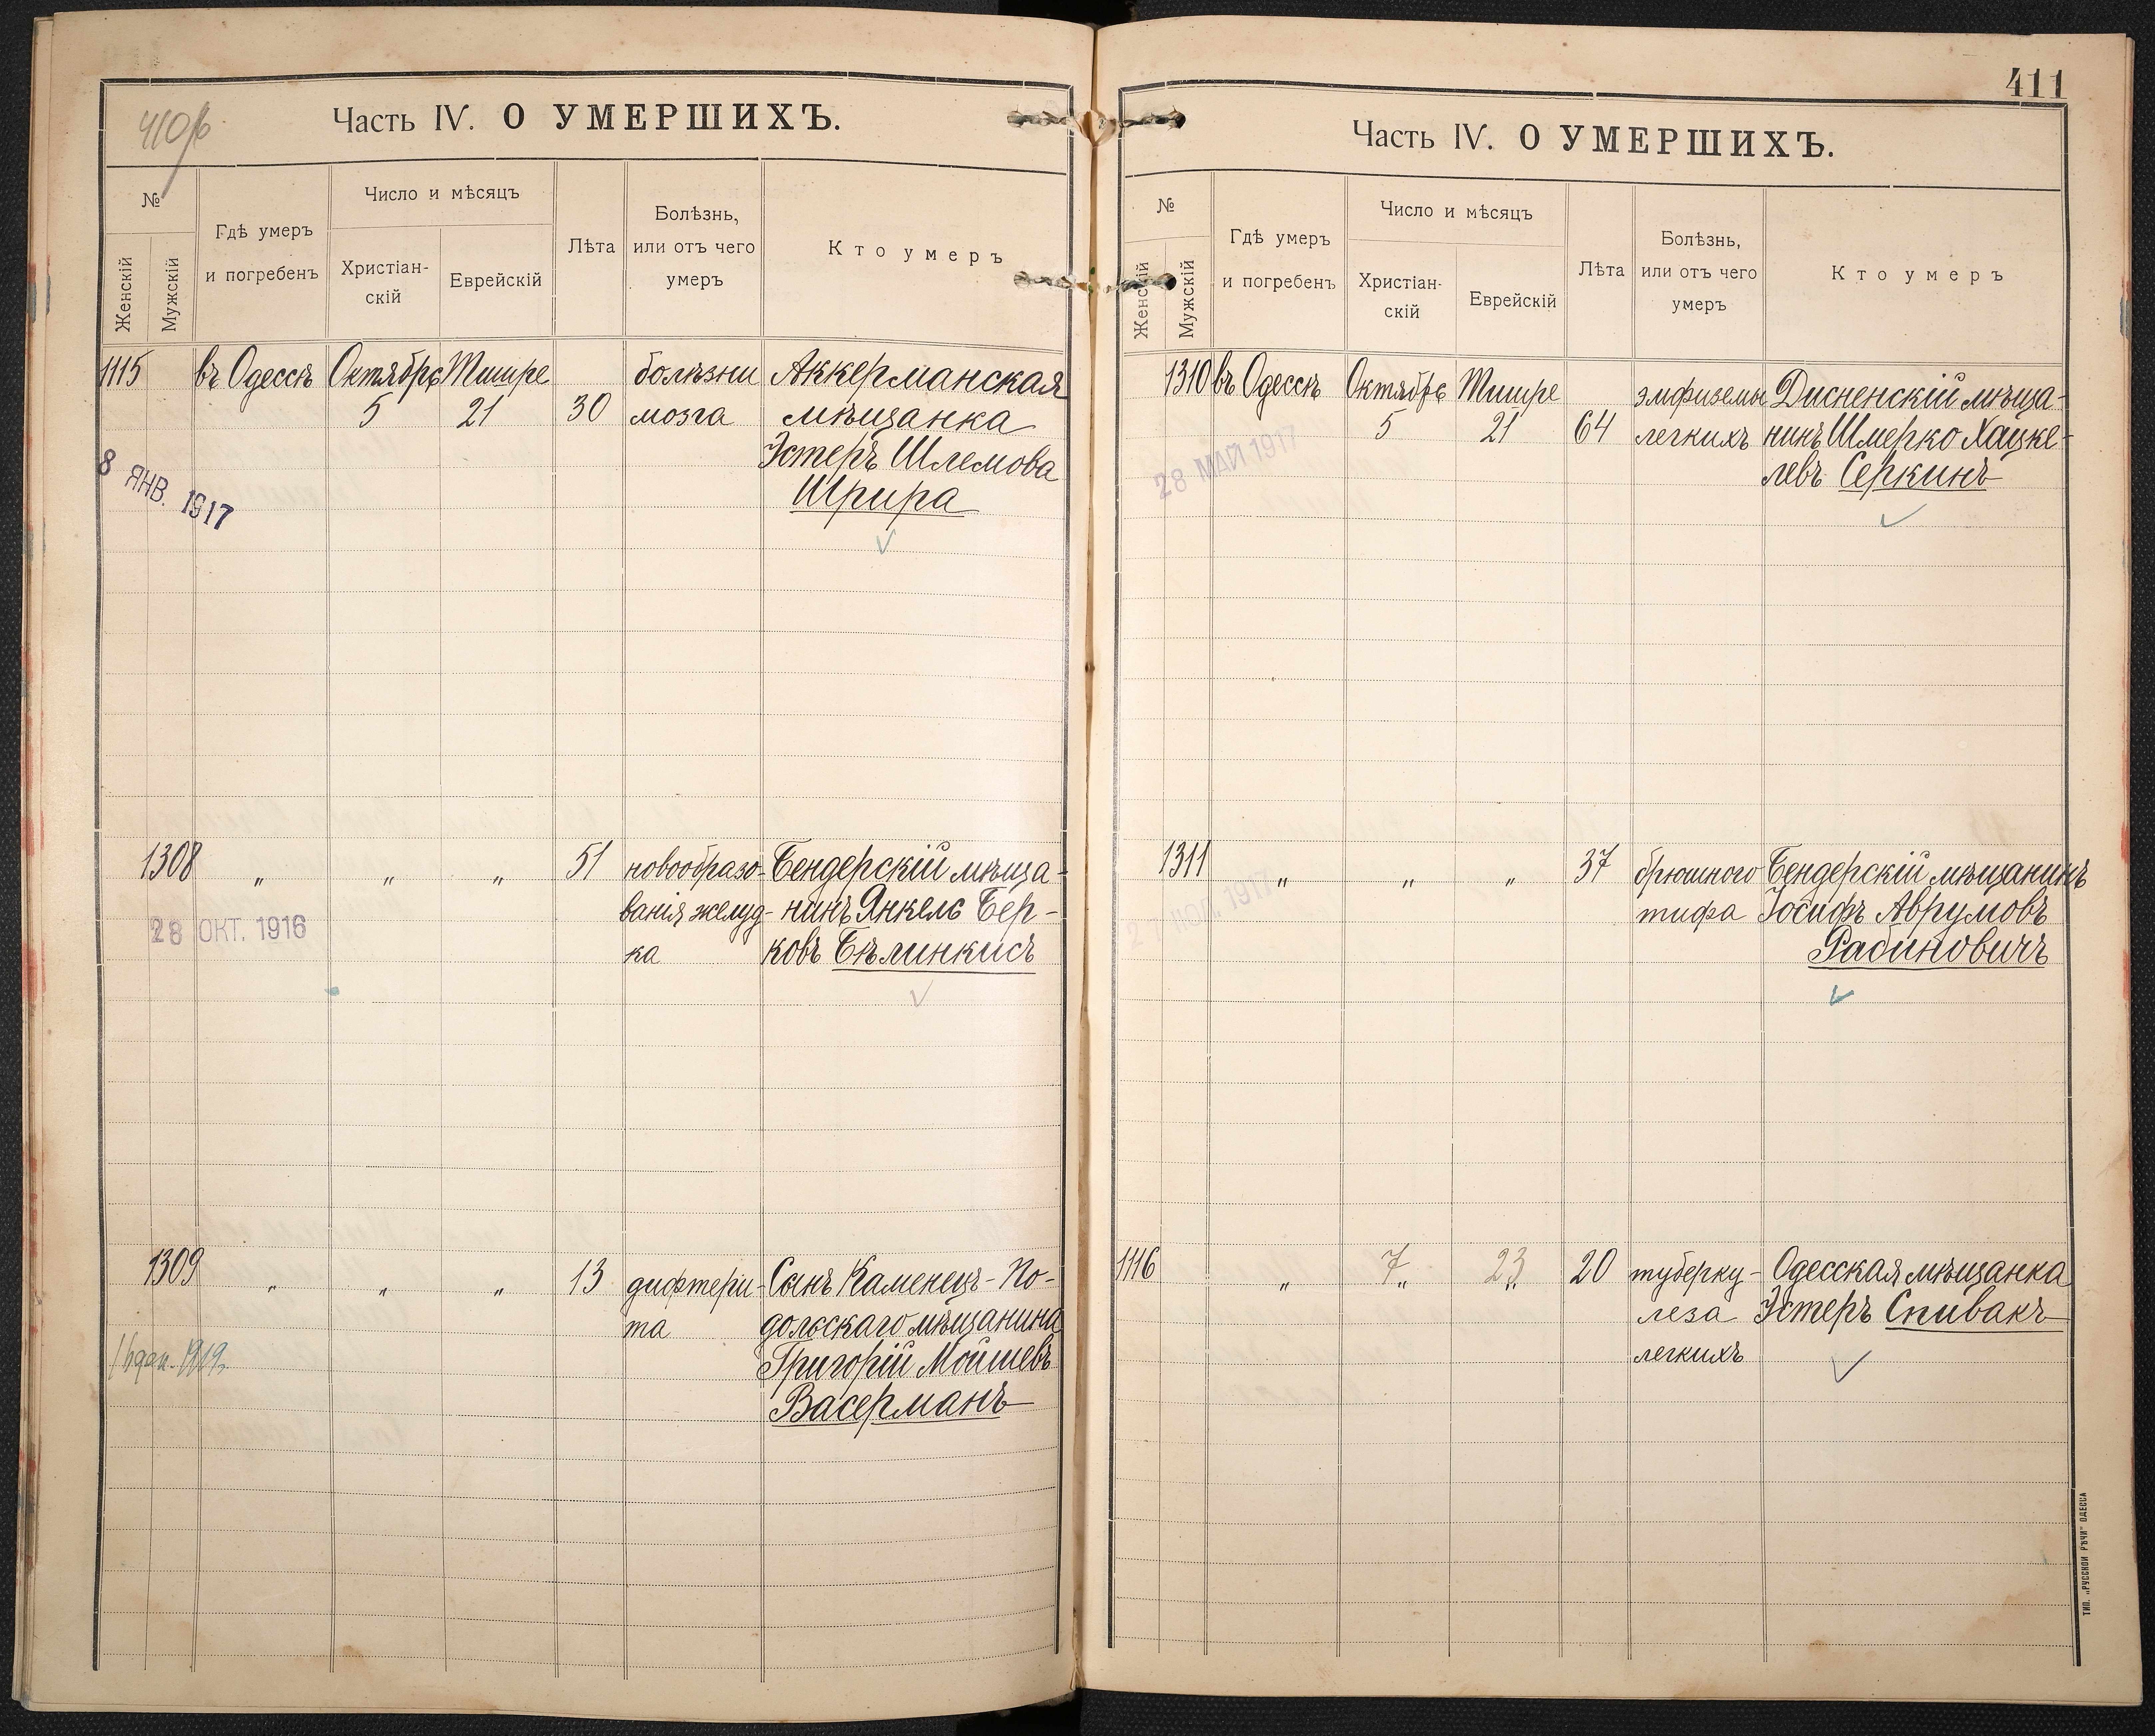 410/b
Часть IV. О УМЕРШИХЪ.
№
Женскій
Мужскій
Гдѣ умеръ
и погребенъ
Число и мѣсяцъ
Христіан-
скій
Еврейскій
Лѣта
Болѣзнь,
или отъ чего
умеръ
Кто умеръ
1115 въ Одессѣ Октябрь Тишре болѣзни Аккерманская
5 21 30 мозга мѣщанка
Эстеръ Шлемова
Шрира
8 ЯНВ. 1917
1308 „ „ „ 51 новообразо- Бендерскій мѣща-
ванія желуд- нинъ Янкель Бер-
ка ковъ Бѣлинкисъ
28 ОКТ. 1916
1309 „ „ „ 13 дифтери- Сынъ Каменецъ-По-
та дольскаго мѣщанина
Григорій Мойшевъ
Васерманъ
1919
411
Часть IV. О УМЕРШИХЪ.
№
Женскій
Мужскій
Гдѣ умеръ
и погребенъ
Число и мѣсяцъ
Христіан-
скій
Еврейскій
Лѣта
Болѣзнь,
или отъ чего
умеръ
Кто умеръ
1310 въ Одессѣ Октябрь Тишре эмфиземы Дисненскій мѣща-
5 21 64 легкихъ нинъ Шмерко Хацке-
левъ Серкинъ
28 МАЙ 1917
1311 „ „ „ 37 брюшного Бендерскій мѣщанинъ
тифа Іосифъ Аврумовъ
Рабиновичъ
1917
1116 „ 7„ 23„ 20 туберку- Одесская мѣщанка
леза Эстеръ Спивакъ
легкихъ
ТИП. „РУССКОЙ РѢЧИ" ОДЕССА